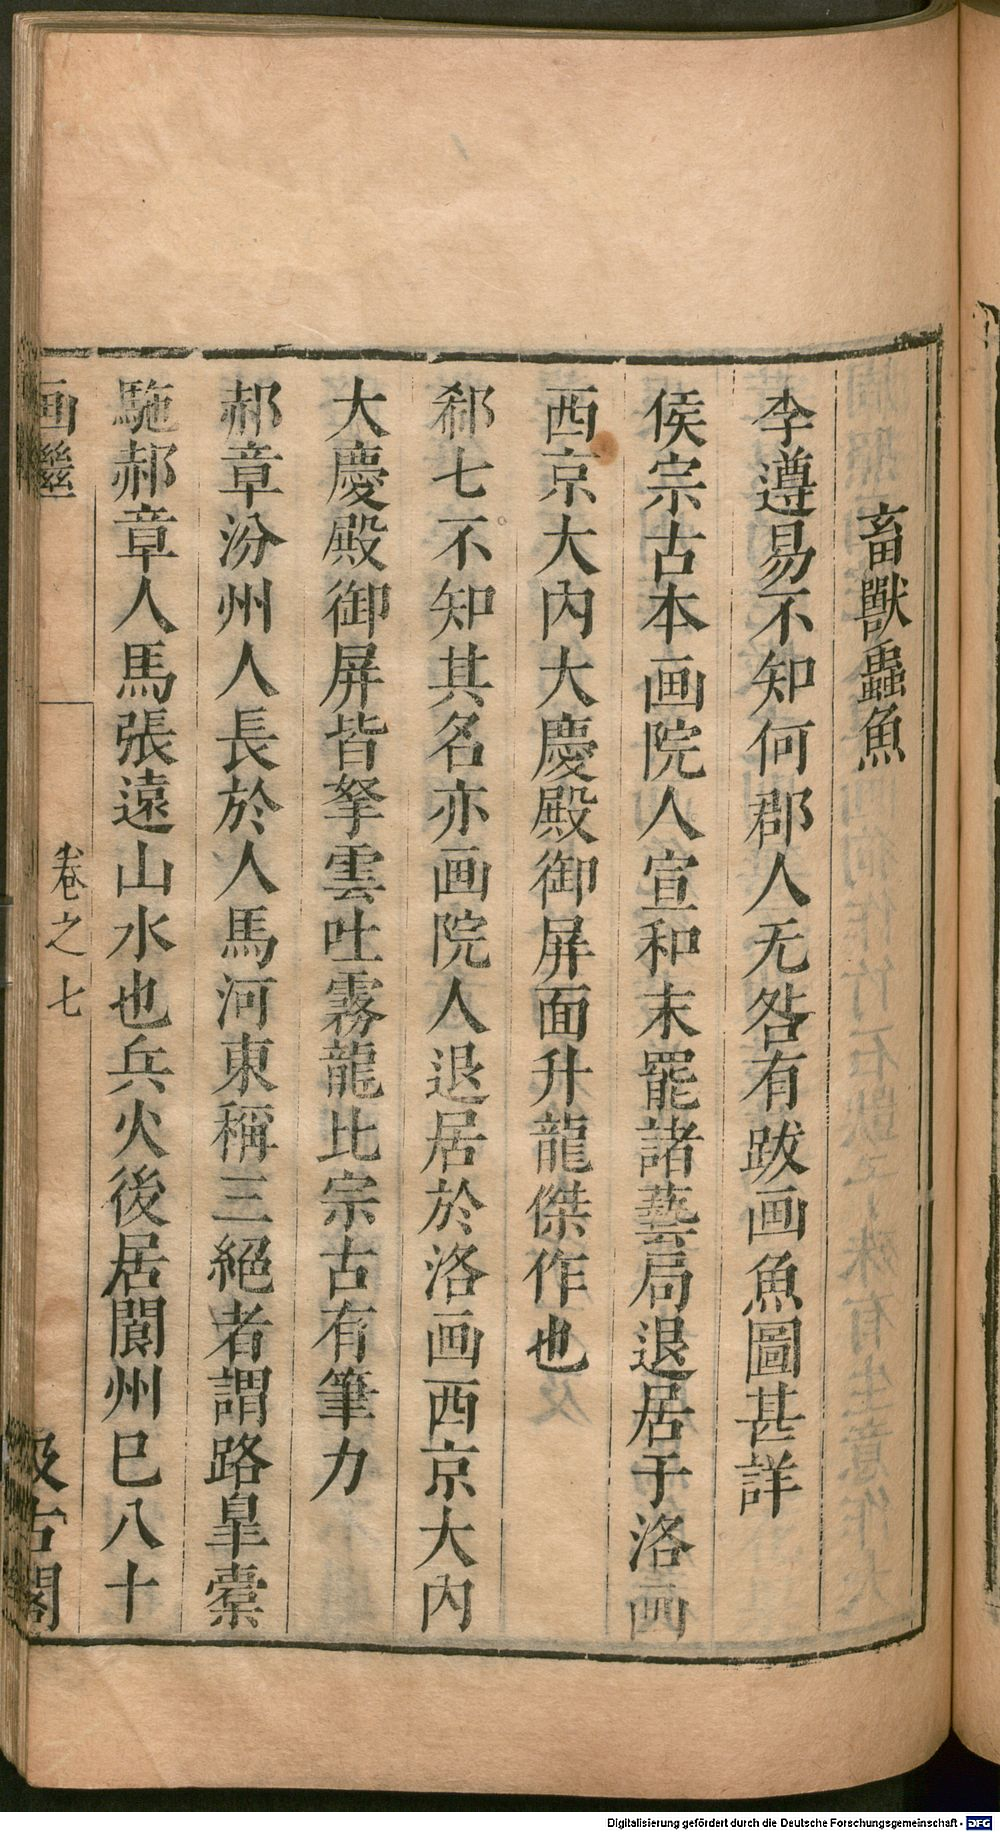 畜獸蟲魚
李遵易不知何郡人无咎有跋画魚圖甚詳
侯宗古本画院人宣和末罷諸藝局退居于洛画
西京大內大慶殿御屏面升龍傑作也
郄七不知其名亦画院人退居於洛画西京大内
大慶殿御屏皆拏雲吐霧龍比宗古有筆力
郝章汾州人長於人馬河東稱三絕者謂路皐橐
駞郝章人馬張遠山水也兵火後居閬州巳八十
画繼
卷之七
汲古閣
Digitalisierung gefördert durch die Deutsche Forschungsgemeinschaft - DFG